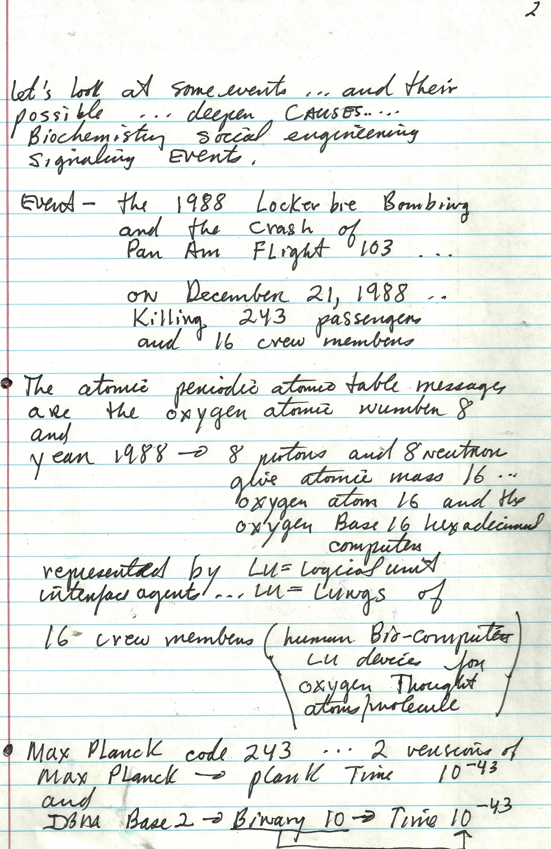 2
Let's look at some events ... and their
possible ... deeper CAUSES.....
Biochemistry social engineering
signaling Events.
Event - the 1988 Lockerbie Bombing
and the crash of
Pan Am Flight 103 ...
on December 21, 1988 ..
Killing 243 passengers
and 16 crew members
• The atomic periodic atomic table messages
are the oxygen atomic number 8
and
year 1988 → 8 protons and 8 neutron
give atomic mass 16 ...
oxygen atom 16 and the
oxygen Base 16 hexadecimal
computer
represented by LU = Logical unit
interface agents ... LU = Lungs of
16 - crew members (human Bio-computer
LU devices for
oxygen Thought
atoms/molecule)
• Max Planck code 243 ... 2 versions of
Max Planck → plank Time 10⁻⁴³
and
Base 2 → Binary 10 → Time 10⁻⁴³